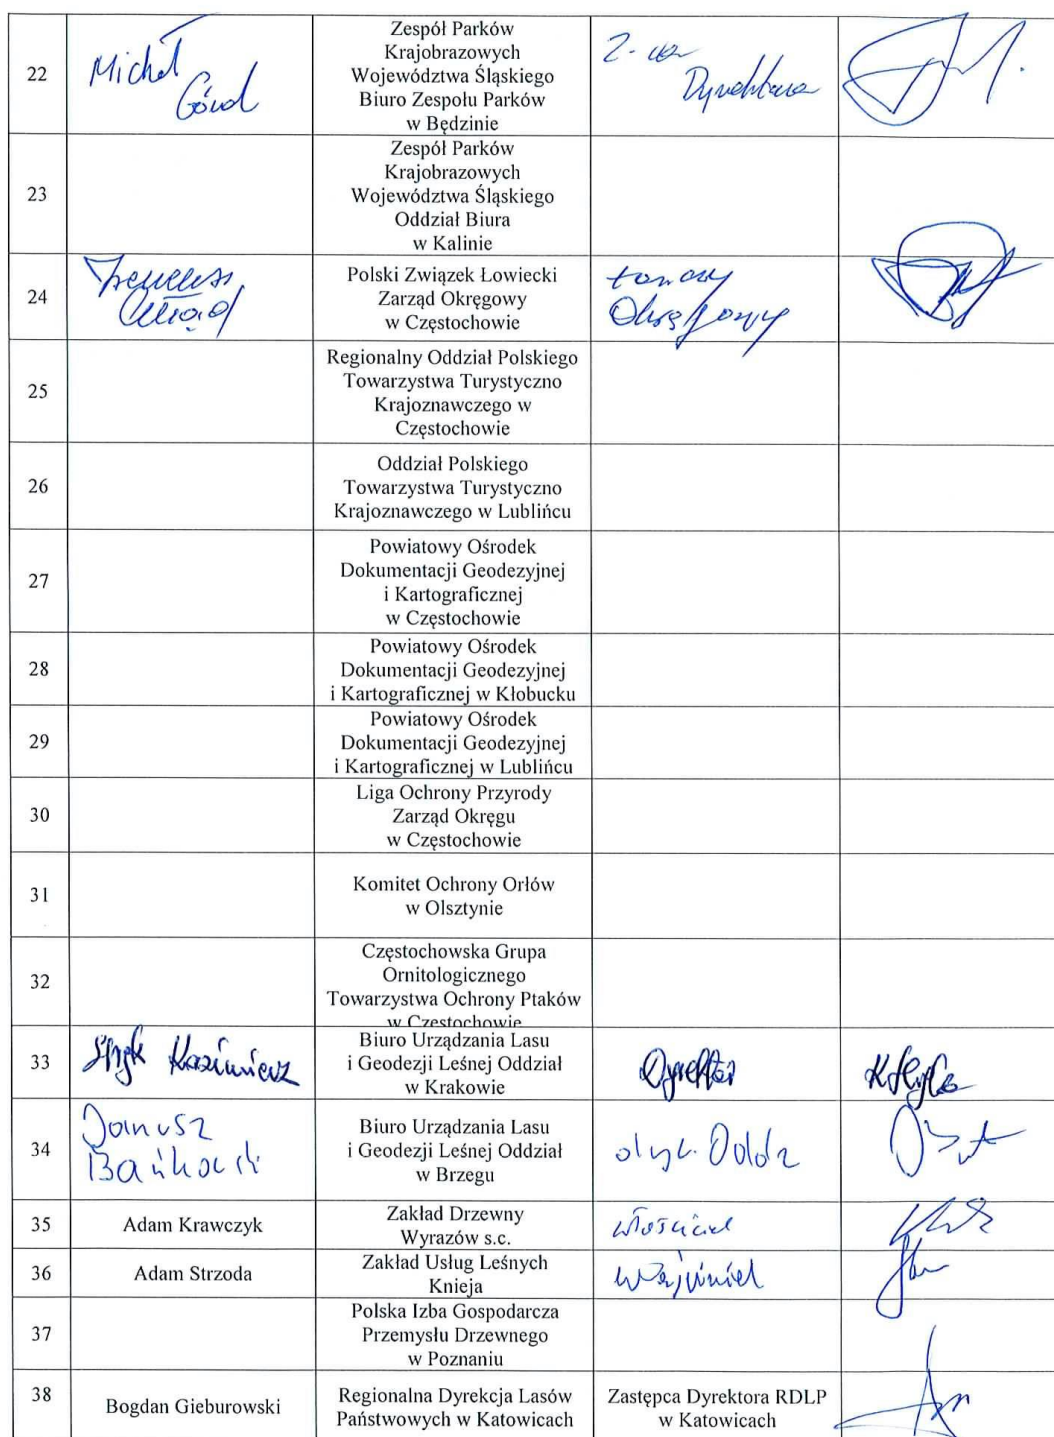 22
Michał
Zespół Parków
Krajobrazowych
Województwa Śląskiego
Biuro Zespołu Parków
w Będzinie
Z-ca
Dyrektora
23
Zespół Parków
Krajobrazowych
Województwa Śląskiego
Oddział Biura
w Kalinie
24
Ireneusz
Polski Związek Łowiecki
Zarząd Okręgowy
w Częstochowie
Łowczy
Okręgowy
25
Regionalny Oddział Polskiego
Towarzystwa Turystyczno
Krajoznawczego w
Częstochowie
26
Oddział Polskiego
Towarzystwa Turystyczno
Krajoznawczego w Lublińcu
27
Powiatowy Ośrodek
Dokumentacji Geodezyjnej
i Kartograficznej
w Częstochowie
28
Powiatowy Ośrodek
Dokumentacji Geodezyjnej
i Kartograficznej w Kłobucku
29
Powiatowy Ośrodek
Dokumentacji Geodezyjnej
i Kartograficznej w Lublińcu
30
Liga Ochrony Przyrody
Zarząd Okręgu
w Częstochowie
31
Komitet Ochrony Orłów
w Olsztynie
32
Częstochowska Grupa
Ornitologicznego
Towarzystwa Ochrony Ptaków
w Częstochowie
33
Kazimierz
Biuro Urządzania Lasu
i Geodezji Leśnej Oddział
w Krakowie
Dyrektor
34
Janusz
Bańkowski
Biuro Urządzania Lasu
i Geodezji Leśnej Oddział
w Brzegu
35
Adam Krawczyk
Zakład Drzewny
Wyrazów s.c.
właściciel
36
Adam Strzoda
Zakład Usług Leśnych
Knieja
37
Polska Izba Gospodarcza
Przemysłu Drzewnego
w Poznaniu
38
Bogdan Gieburowski
Regionalna Dyrekcja Lasów
Państwowych w Katowicach
Zastępca Dyrektora RDLP
w Katowicach